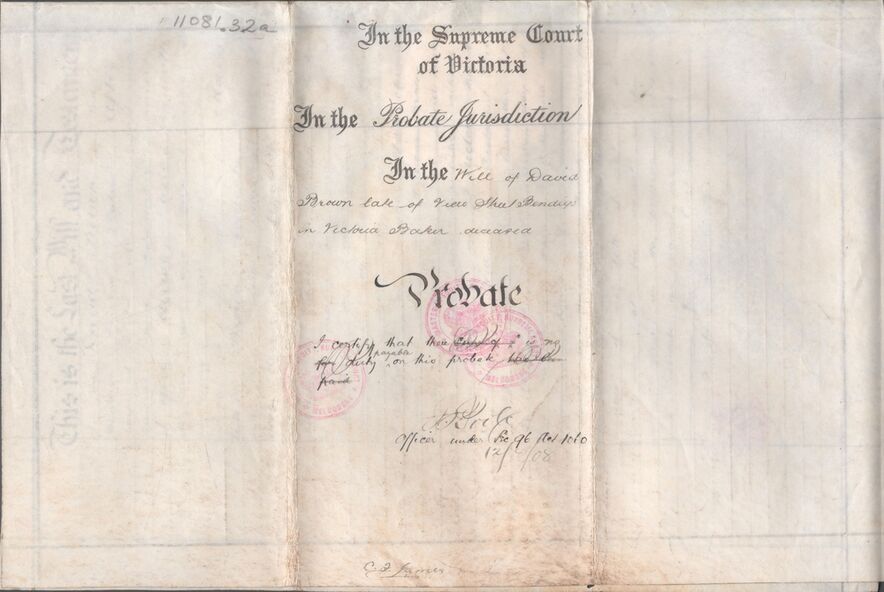 11081.32a
In the Supreme Court
of Victoria
In the Probate Jurisdiction
In the Will of David
Brown late of View Street Bendigo
in Victoria Baker deceased
Probate
I certify that there is no
duty payable on this probate
paid
Officer under Sec 96 Act 1060
12/ /08
C. F. James
This is the Last Will and Testament